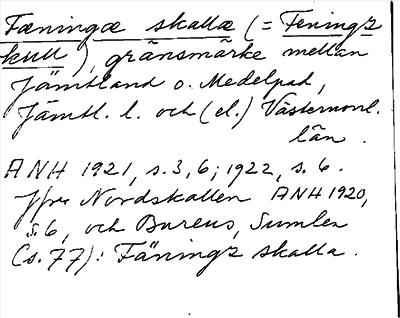 Fæningæ skallæ (= Fenings
kull), gränsmärke mellan
Jämtland o. Medelpad,
Jämtl. l. och (el.) Västernorrl.
län.
ANH 1921, s. 3, 6; 1922, s. 6.
Jfr Nordskallen ANH 1920,
s. 6, och Bureus, Sumlen
(s. 77): Fänings skalla.